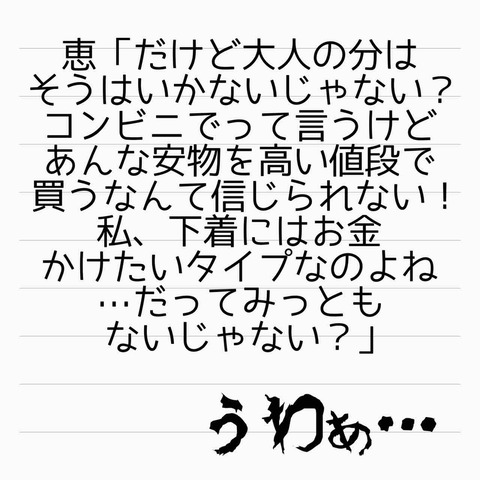 恵「だけど大人の分は
そうはいかないじゃない？
コンビニでって言うけど
あんな安物を高い値段で
買うなんて信じられない！
私、下着にはお金
かけたいタイプなのよね
…だってみっとも
ないじゃない？」
うわぁ…